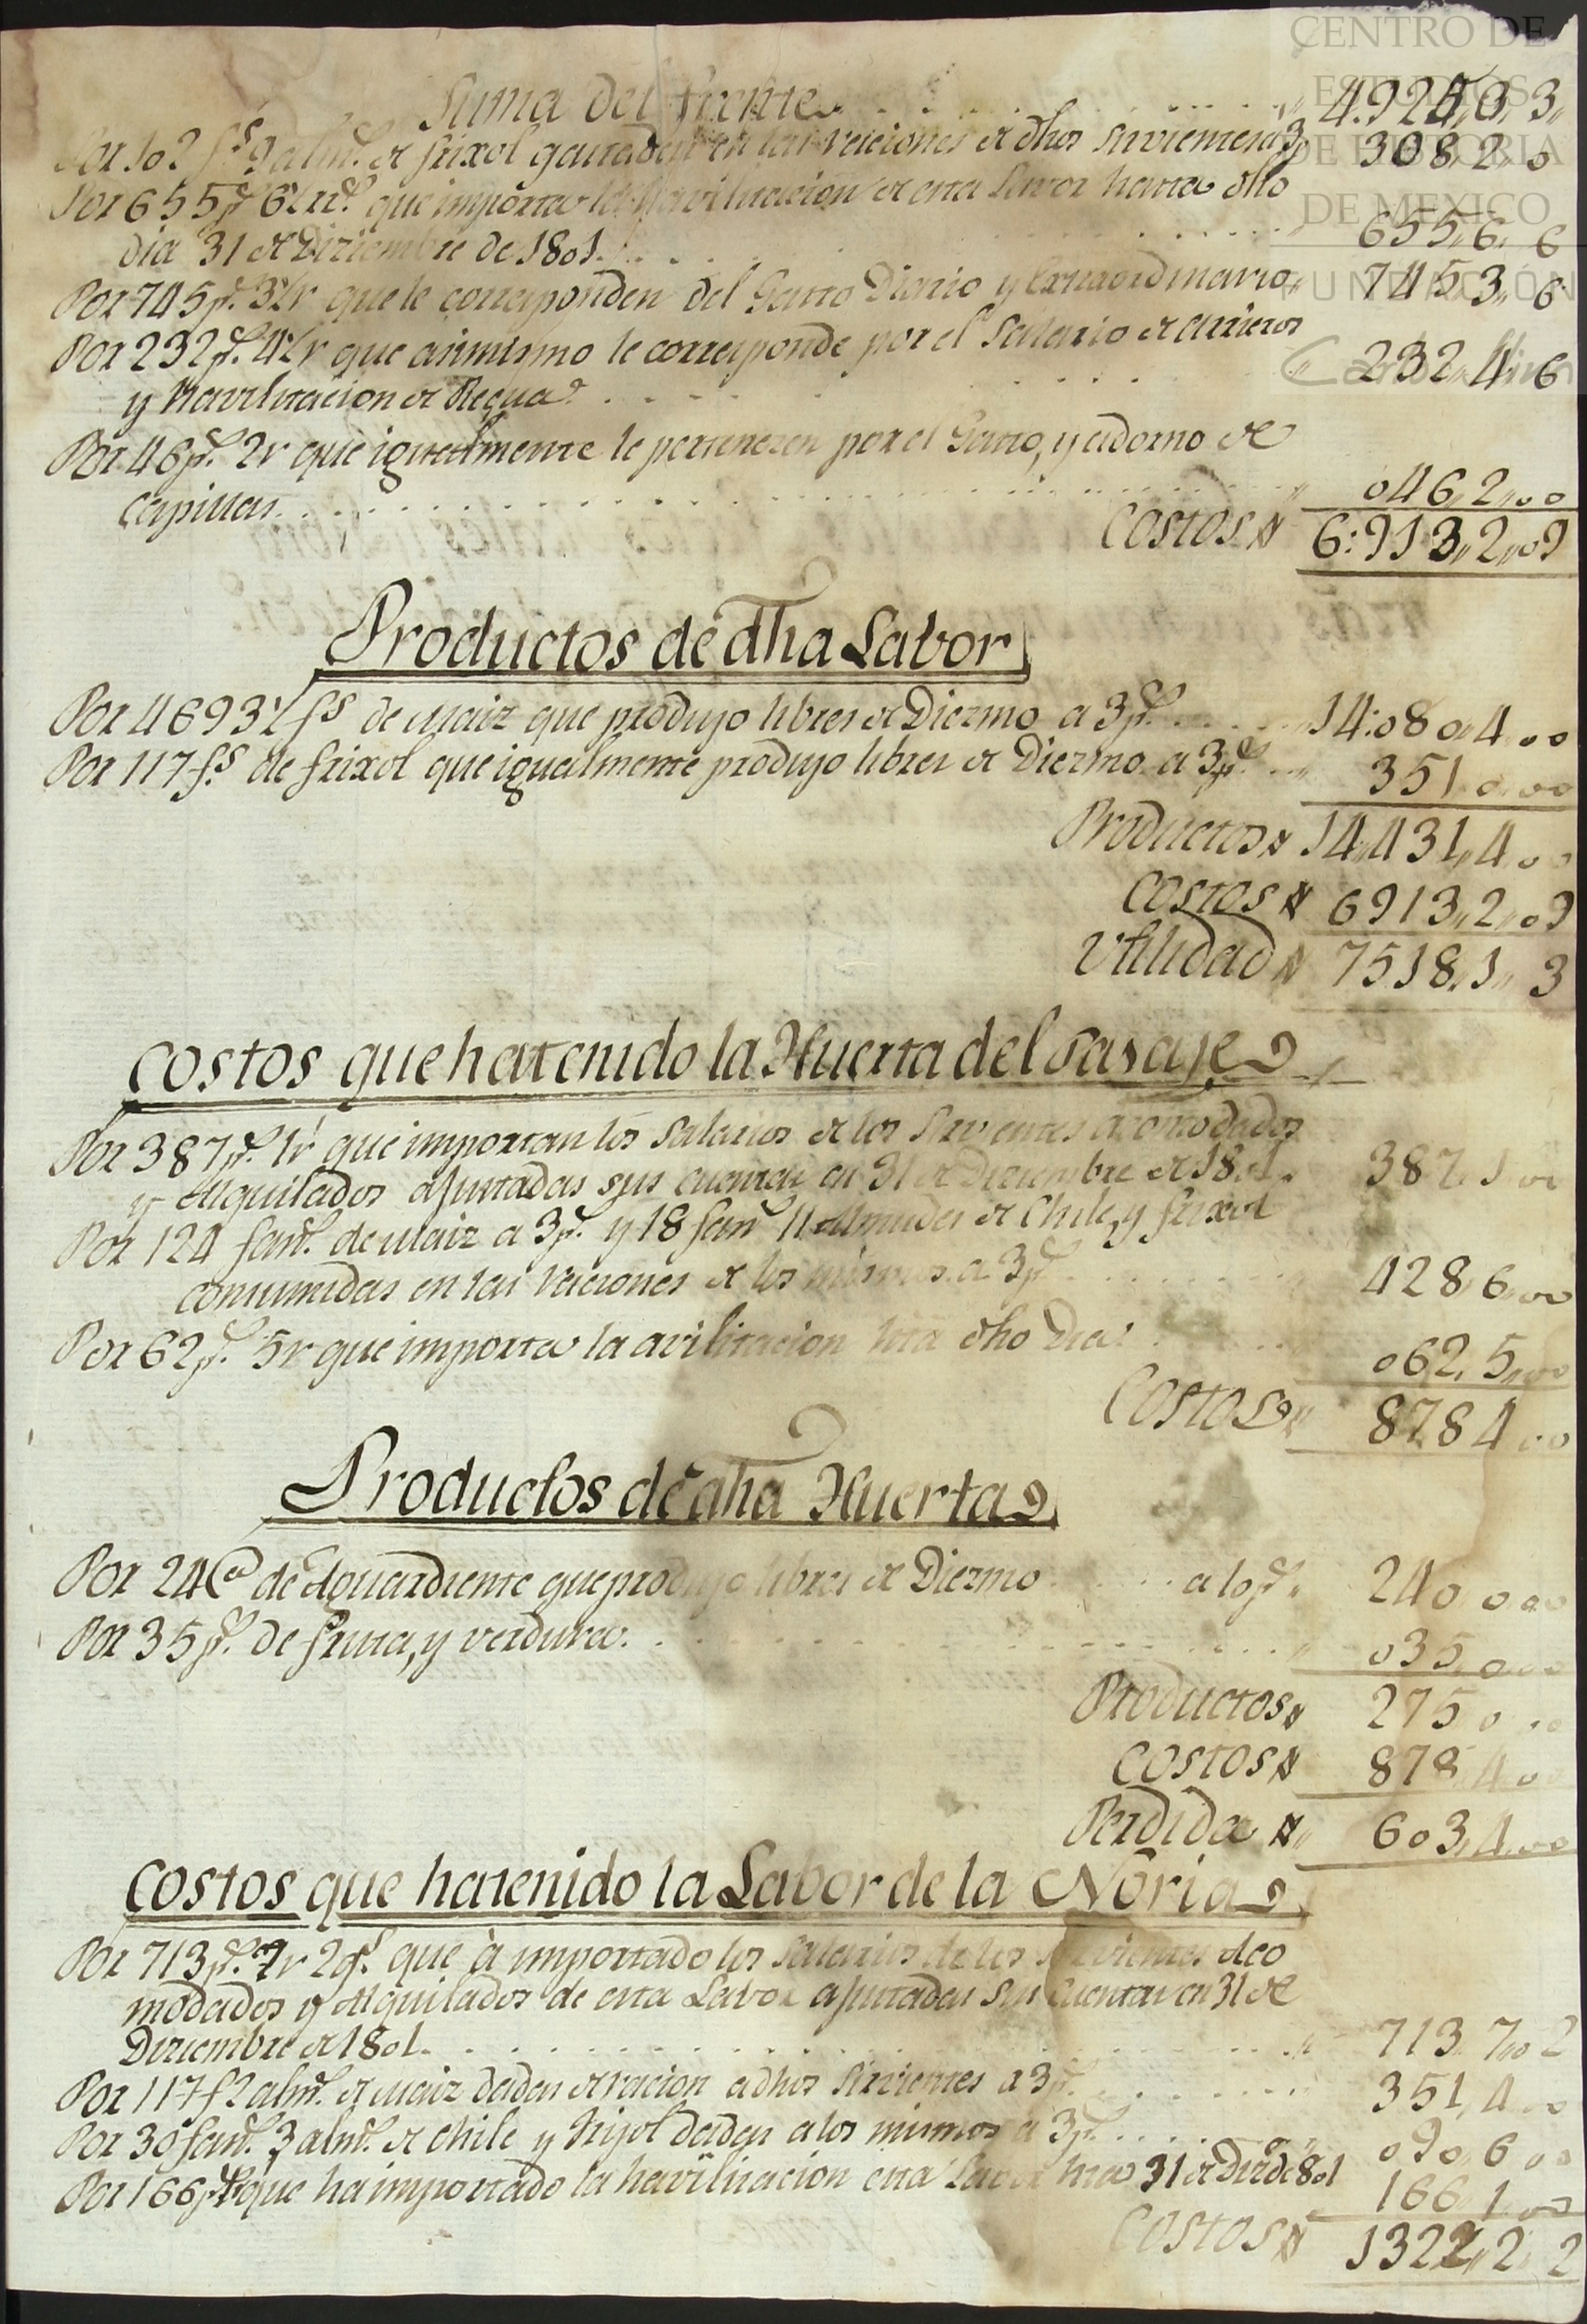 CENTRO DE
ESTUDIOS
DE HISTORIA
DE MEXICO
FUNDACIÓN
Suma del frente 4.924,,0,,3,,
Por 102 fs 9 almˢ. de frixol gastadas en las raciones de dhos sirvientes a 3p 308,,2,,0
Por 655pˢ. 6½rrˢ. que importa la havilitacion de esta Lavor hasta dho
dia 31 de Diziembre de 1801. 655,,6,,6
Por 745pˢ. 3½r que le corresponden del Gasto Diario y Extraordinario 745,,3,,6
Por 232pˢ. 4½r que asimismo le corresponde por el Salario de arrieros
y havilitacion de Requas 232,,4,,6
Por 46pˢ. 2r que igualmente le pertenecen por el Gasto, y adorno de
Capillas 046,,2,,00
Costos 6:913,,2,,09
Productos de dha Labor
Por 4693½ fs de Maiz que produjo libres de Diezmo a 3pˢ. 14:080,,4,,00
Por 117 fˢ. de frixol que igualmente produjo libres de Diezmo a 3pˢ. 351,,0,,00
Productos 14,,431,,4,,00
Costos 6913,,2,,09
Utilidad 7518,,1,,3
Costos que ha tenido la Huerta del Pasaje
Por 387pˢ. 1r que importan los Salarios de los Sirvientes acomodados
y Alquilados ajustadas sus cuentas en 31 de Diciembre de 1801. 387,,1,,00
Por 124 fanˢ. de Maiz a 3pˢ. y 18 fanˢ 11 Almudes de Chile, y frixol
consumidas en las raciones de los mismos a 3pˢ 428,,6,,00
Por 62pˢ. 5r que importa la avilitacion hta dho Dia 062,,5,,00
Costos 878,,4,,00
Productos de dha Huerta
Por 24 de Aguardiente que produjo libres de Diezmo a 10pˢ. 240,,0,,00
Por 35pˢ. de fruta, y verdura. 035,,0,,00
Productos 275,,0,,00
Costos 878,,4,,00
Perdida 603,,4,,00
Costos que ha tenido la Labor de la Noria
Por 713pˢ. 7r 2gˢ. que à importado los Salarios de los Sirvientes Aco
modados y Alquilados de esta Labor ajustadas sus Cuentas en 31 de
Diziembre de 1801. 713,,7,,02
Por 117 f 2 almˢ. de Maiz dadas de racion a dhos Sirvientes a 3pˢ. 351,,4,,00
Por 30 fanˢ. 3 almˢ. de Chile y frijol dadas a los mismos a 3pˢ. 090,,6,,00
Por 166p 1r que ha importado la havilitacion esta Lavor hta 31 de Dizᵉ de 801 166,,1,,00
Costos 1322,,2,,2